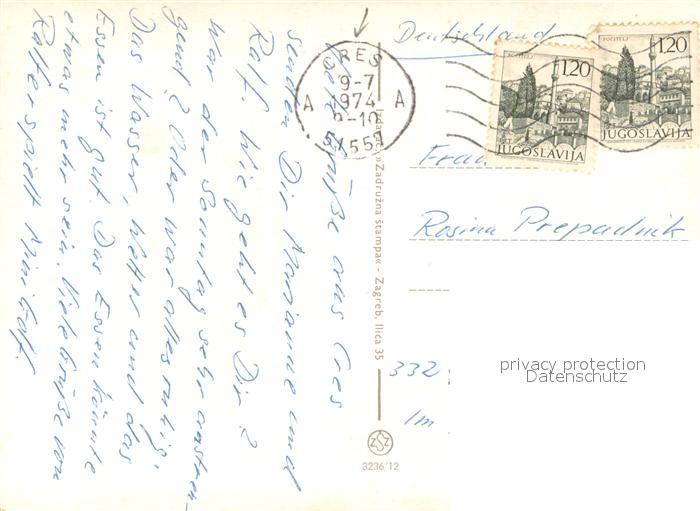 Nette Grüße aus Cres
senden Dir Marianne und
Ralf. Wie geht es Dir?
War der Sonntag sehr anstren-
gend? Oder war alles ruhig.
Das Wasser, Wetter und das
Essen ist gut. Das Essen könnte
etwas mehr sein. Viele Grüße von
Ralf er spielt Minigolf.
CRES
9-7
1974
A A
51557
»Zadružna štampa« - Zagreb, Ilica 35
ZSZ
3236/12
Deutschland
POČITELJ
1.20
JUGOSLAVIJA
POČITELJ
1.20
JUGOSLAVIJA
Frau
Rosina Prepadnik
332
Im
privacy protection
Datenschutz